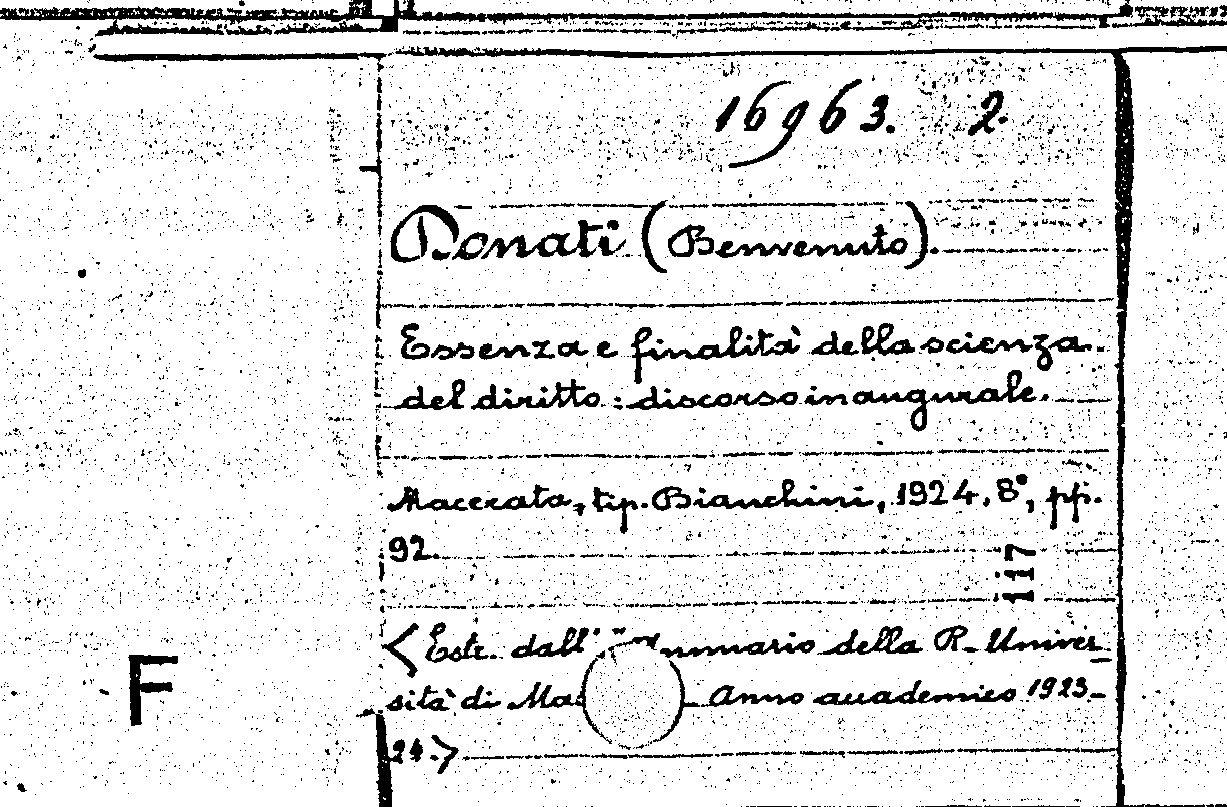 16963. 2.
Donati (Benvenuto).
Essenza e finalità della scienza
del diritto : discorso inaugurale.
Macerata, tip. Bianchini, 1924, 8°, pp.
92.
117
< Estr. dall' Annuario della R. Univer-
sità di Mac Anno accademico 1923-
24. >
F